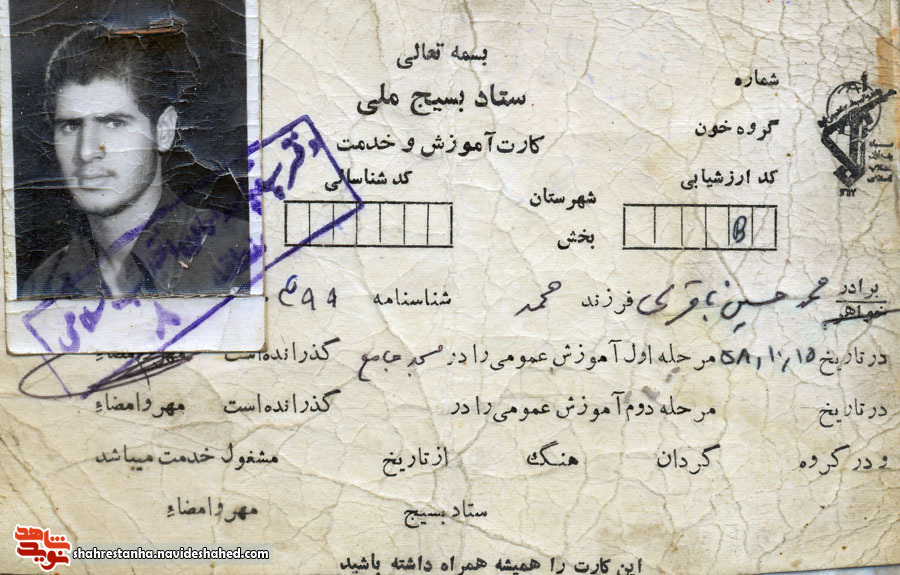 بسمه تعالی
شماره
ستاد بسیج ملی
گروه خون
کارت آموزش و خدمت
کد ارزشیابی
کد شناسائی
شهرستان
B
بخش
برادر محمد حسین باقری فرزند محمد شناسنامه ۴۹۹
خواهر
در تاریخ ۵۸٫۱۰٫۱۵ مرحله اول آموزش عمومی را در مسجد جامع گذرانده است مهر وامضاء
در تاریخ مرحله دوم آموزش عمومی را در گذرانده است مهر وامضاء
و در گروه گردان هنگ از تاریخ مشغول خدمت میباشد
ستاد بسیج مهر وامضاء
این کارت را همیشه همراه داشته باشید
شاهد
نوید
shahrestanha.navideshahed.com